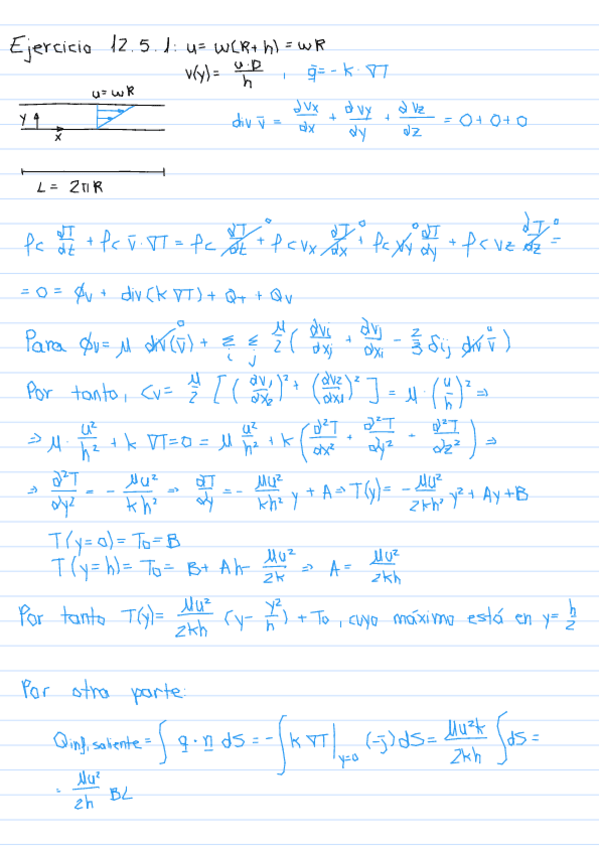 Ejercicio 12.5.1: u = w(R+h) = wR
v(y) = u·D/h , q̄ = -k·∇T
u = wR
y
x
div v̄ = ∂vx/∂x + ∂vy/∂y + ∂vz/∂z = 0+0+0
L = 2πR
ρc ∂T/∂t + ρc v̄·∇T = ρc ∂T/∂t⁰ + ρc vx ∂T/∂x⁰ + ρc vy⁰ ∂T/∂y + ρc vz ∂T/∂z⁰ =
= 0 = ϕv + div(k ∇T) + Qr + Qv
Para ϕv = μ div(v̄)⁰ + Σi Σj μ/2 (∂vi/∂xj + ∂vj/∂xi - 2/3 δij div v̄⁰)
Por tanto, Cv = μ/2 [(∂v1/∂x2)² + (∂v2/∂x1)²] = μ·(u/h)² ⇒
⇒ μ·u²/h² + k ∇T = 0 = μ u²/h² + k (∂²T/∂x² + ∂²T/∂y² + ∂²T/∂z²) ⇒
⇒ ∂²T/∂y² = - μu²/kh² ⇒ ∂T/∂y = - μu²/kh² y + A ⇒ T(y) = - μu²/2kh² y² + Ay + B
T(y=0) = To = B
T(y=h) = To = B + Ah - μu²/2k ⇒ A = μu²/2kh
Por tanto T(y) = μu²/2kh (y - y²/h) + To, cuyo máximo está en y = h/2
Por otra parte:
Qinf, saliente = ∫ q·n dS = -∫ k ∇T|y=0 (-j̄) dS = μu²k/2kh ∫dS =
= μu²/2h BL